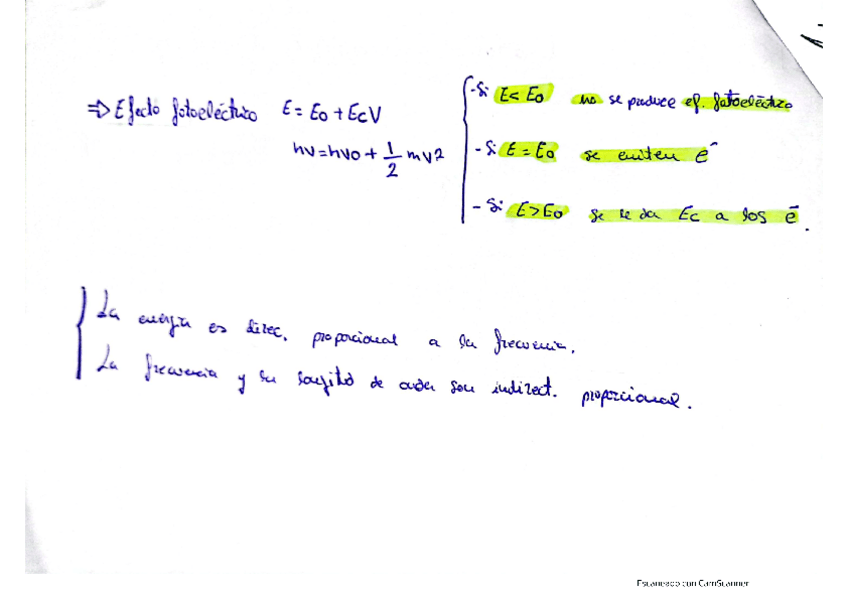 ⇒ Efecto fotoeléctrico E = E0 + EcV
hν = hν0 + 1/2 mv²
- Si E < E0 no se produce ef. fotoeléctrico
- Si E = E0 se emiten e⁻
- Si E > E0 se le da Ec a los e⁻.
La energía es direc. proporcional a la frecuencia.
La frecuencia y la longitud de onda son indirect. proporcional.
Escaneado con CamScanner